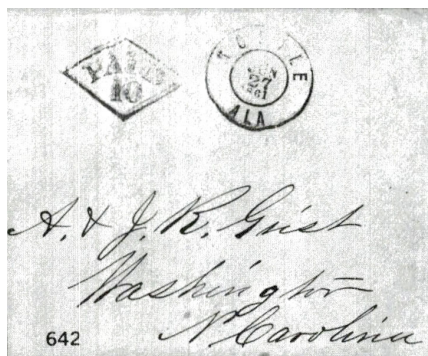 PAID
10
MOBILE
JUN
27
1861
ALA
A. & J. R. Grist
Washington
N Carolina
642